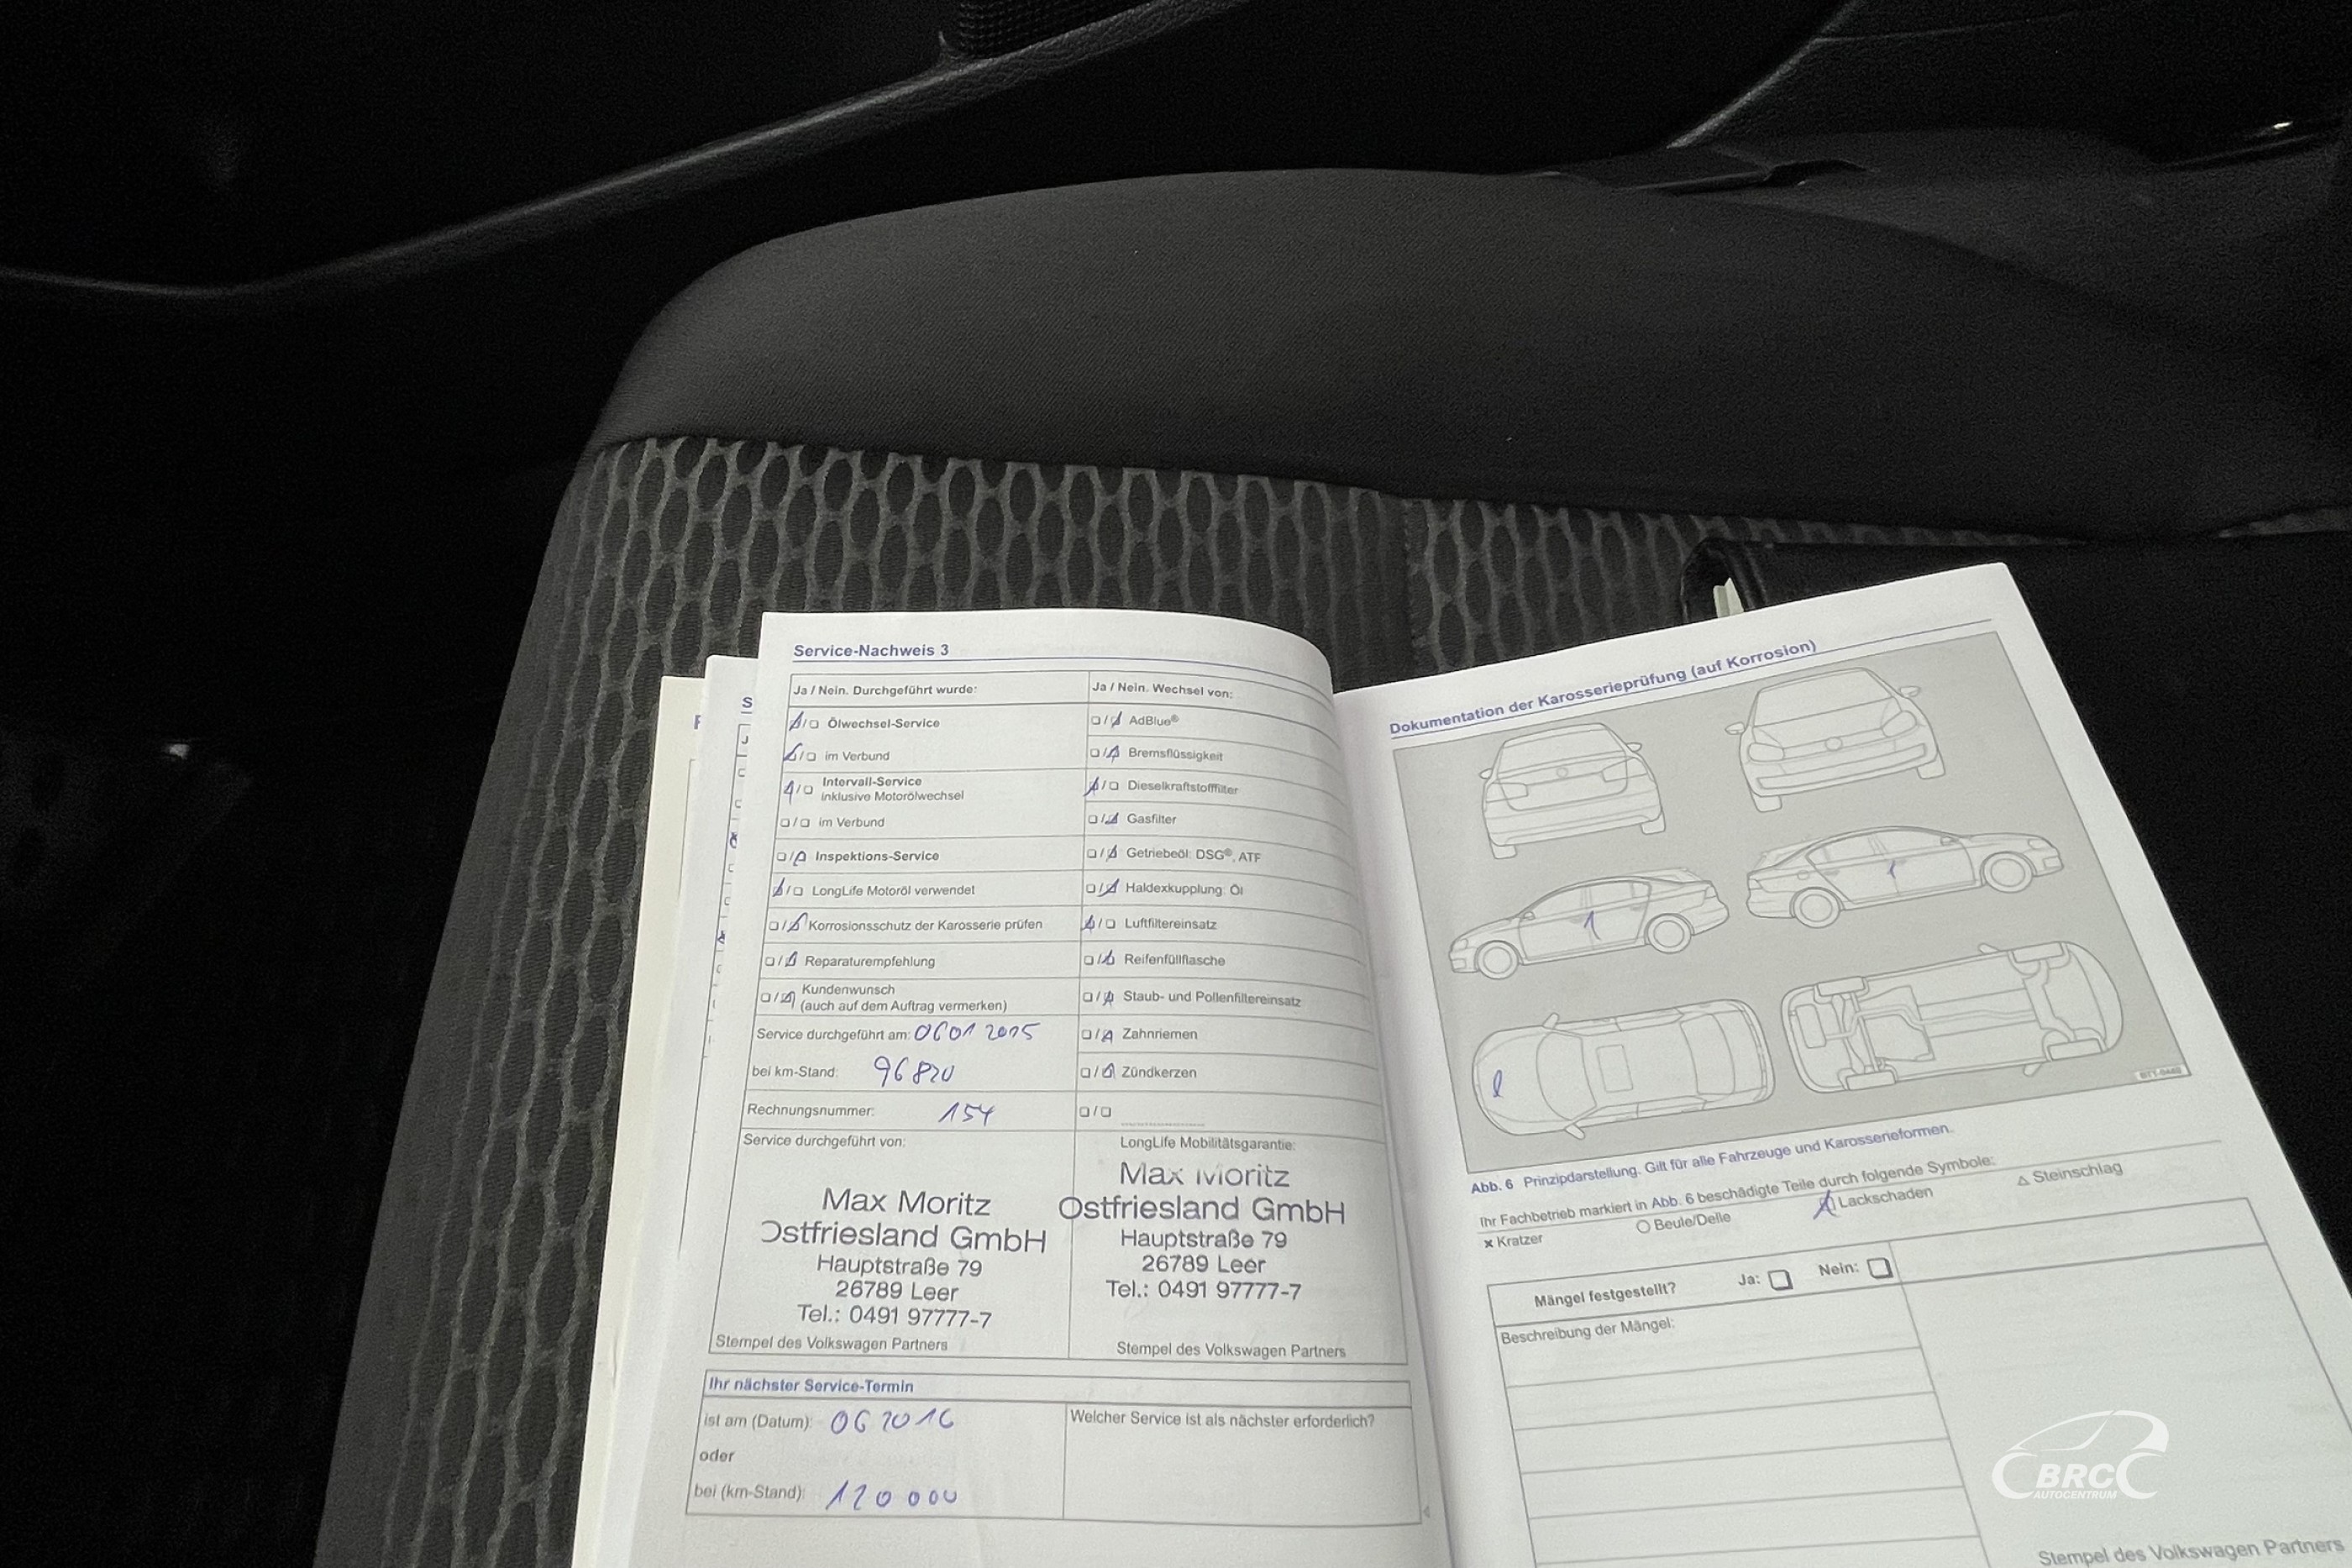 Service-Nachweis 3
Ja / Nein. Durchgeführt wurde:
Ölwechsel-Service
im Verbund
Intervall-Service
inklusive Motorölwechsel
im Verbund
Inspektions-Service
LongLife Motoröl verwendet
Korrosionsschutz der Karosserie prüfen
Reparaturempfehlung
Kundenwunsch
(auch auf dem Auftrag vermerken)
Service durchgeführt am: 06 01 2015
bei km-Stand: 96 820
Rechnungsnummer: 154
Ja / Nein. Wechsel von:
AdBlue®
Bremsflüssigkeit
Dieselkraftstofffilter
Gasfilter
Getriebeöl: DSG®, ATF
Haldexkupplung: Öl
Luftfiltereinsatz
Reifenfüllflasche
Staub- und Pollenfiltereinsatz
Zahnriemen
Zündkerzen
Service durchgeführt von:
Max Moritz
Ostfriesland GmbH
Hauptstraße 79
26789 Leer
Tel.: 0491 97777-7
Stempel des Volkswagen Partners
LongLife Mobilitätsgarantie:
Max Moritz
Ostfriesland GmbH
Hauptstraße 79
26789 Leer
Tel.: 0491 97777-7
Stempel des Volkswagen Partners
Ihr nächster Service-Termin
ist am (Datum): 06 2016
oder
bei (km-Stand): 120 000
Welcher Service ist als nächster erforderlich?
Dokumentation der Karosserieprüfung (auf Korrosion)
Abb. 6 Prinzipdarstellung. Gilt für alle Fahrzeuge und Karosserieformen.
Ihr Fachbetrieb markiert in Abb. 6 beschädigte Teile durch folgende Symbole:
× Kratzer
○ Beule/Delle
Lackschaden
△ Steinschlag
Mängel festgestellt? Ja: Nein:
Beschreibung der Mängel:
Stempel des Volkswagen Partners
BRC
AUTOCENTRUM